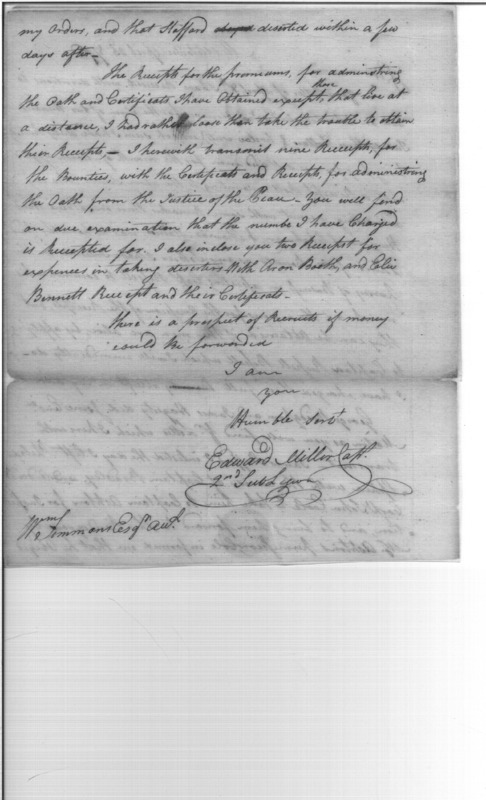 my Orders, and that Stafford deserted within a few
days after—
The Receipts for the premiums, for adminstring
the Oath and Certificats I have Obtained except, those that live at
a distance, I had rather loose than take the trouble to obtain
their Receipts,— I herewith transmit nine Receipts, for
the Bounties, with the Certificats and Receipts, for administring
the Oath from the Justice of the Peace— You will find
on due examination that the numbe I have Charged
is Receipted for. I also inclose you two Receipst for
expences in taking deserters With Aron Booth, and Elii
Bennett Receipt and their Certificats—
there is a prospect of Recruits if money
could be forwarded
I am
your
Humble Servt
Edward Miller Capt.
2nd Sub Legion
Wm Simmons Esqr Audt.